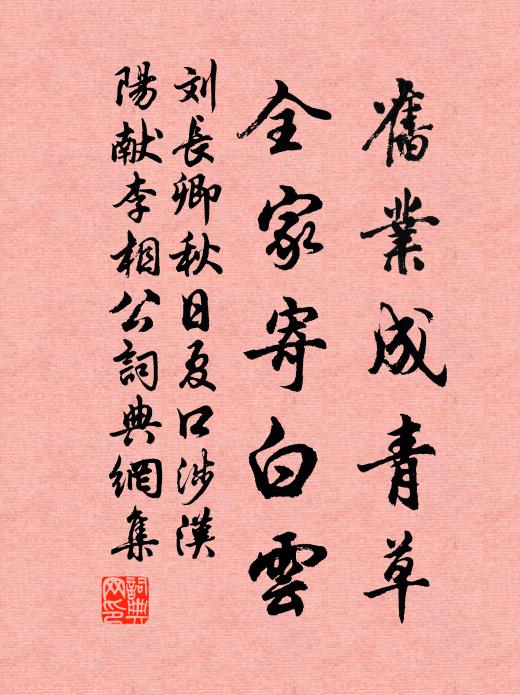 舊業成青草
全家寄白雲
刘長卿秋日夏口涉漢
陽献李相公詞典網集
詞典网印